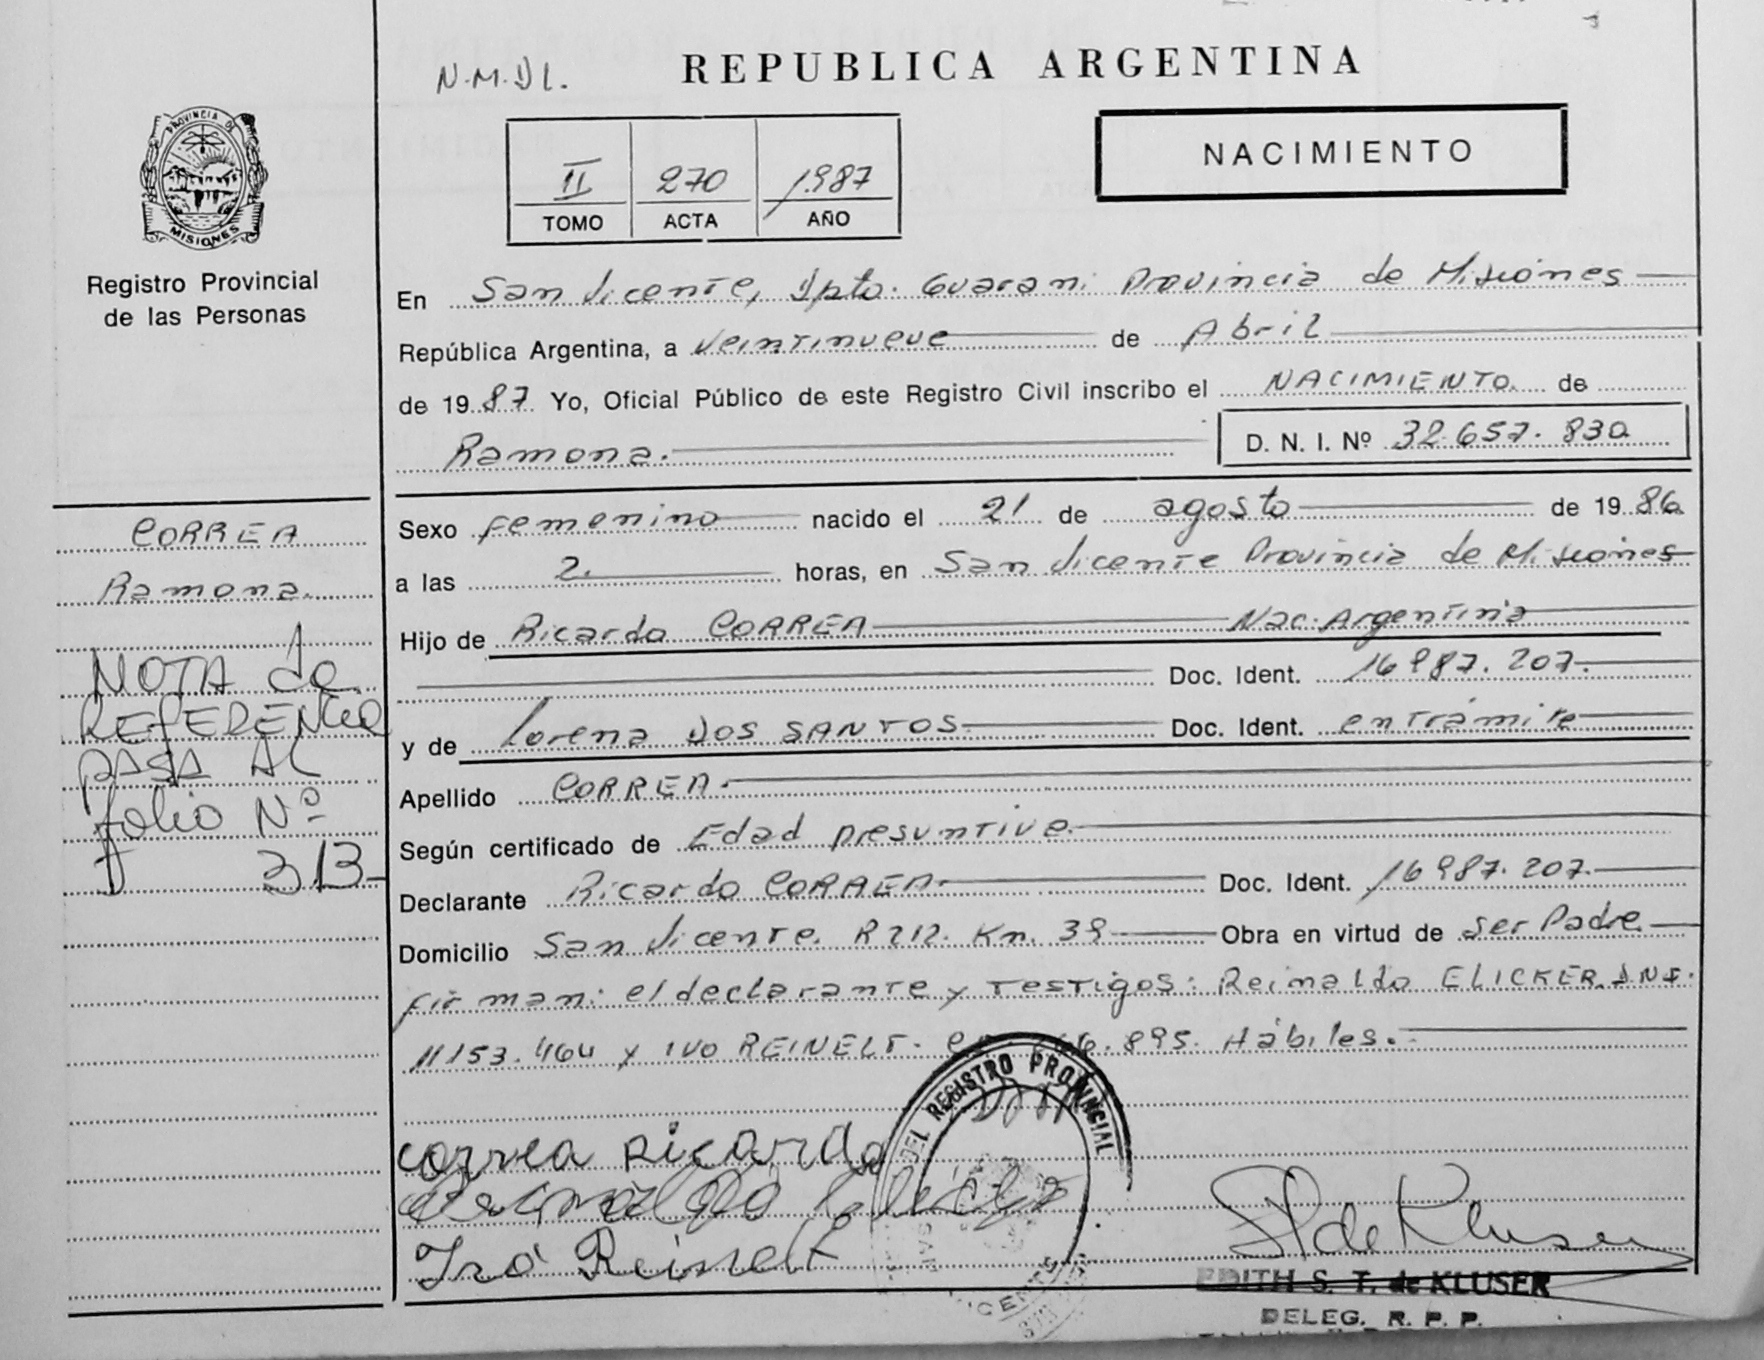 N.M.DL.
REPUBLICA ARGENTINA
PROVINCIA DE
MISIONES
Registro Provincial
de las Personas
II 270 1987
TOMO ACTA AÑO
NACIMIENTO
En San Vicente, Dpto. Guarani Provincia de Misiones
República Argentina, a veintinueve de Abril
de 1987. Yo, Oficial Público de este Registro Civil inscribo el NACIMIENTO de
Ramona.
D. N. I. Nº 32.657.830
CORREA
Ramona.
NOTA de
REFERENCIA
PASA AL
folio Nº
313
Sexo femenino nacido el 21 de agosto de 1986
a las 2. horas, en San Vicente Provincia de Misiones
Hijo de Ricardo CORREA Nac. Argentina
Doc. Ident. 16987.207.
y de Lorena DOS SANTOS Doc. Ident. en trámite
Apellido CORREA.
Según certificado de Edad presuntiva.
Declarante Ricardo CORREA. Doc. Ident. 16987.207.
Domicilio San Vicente. R212. Km. 39 Obra en virtud de ser Padre
firman: el declarante y testigos: Reinaldo ELICKER. DNI.
11153.464 y IVO REINELT. 895. Hábiles.
DEL REGISTRO PROVINCIAL
correa Ricardo
Ivo Reinelt
EDITH S. T. de KLUSER
DELEG. R. P. P.